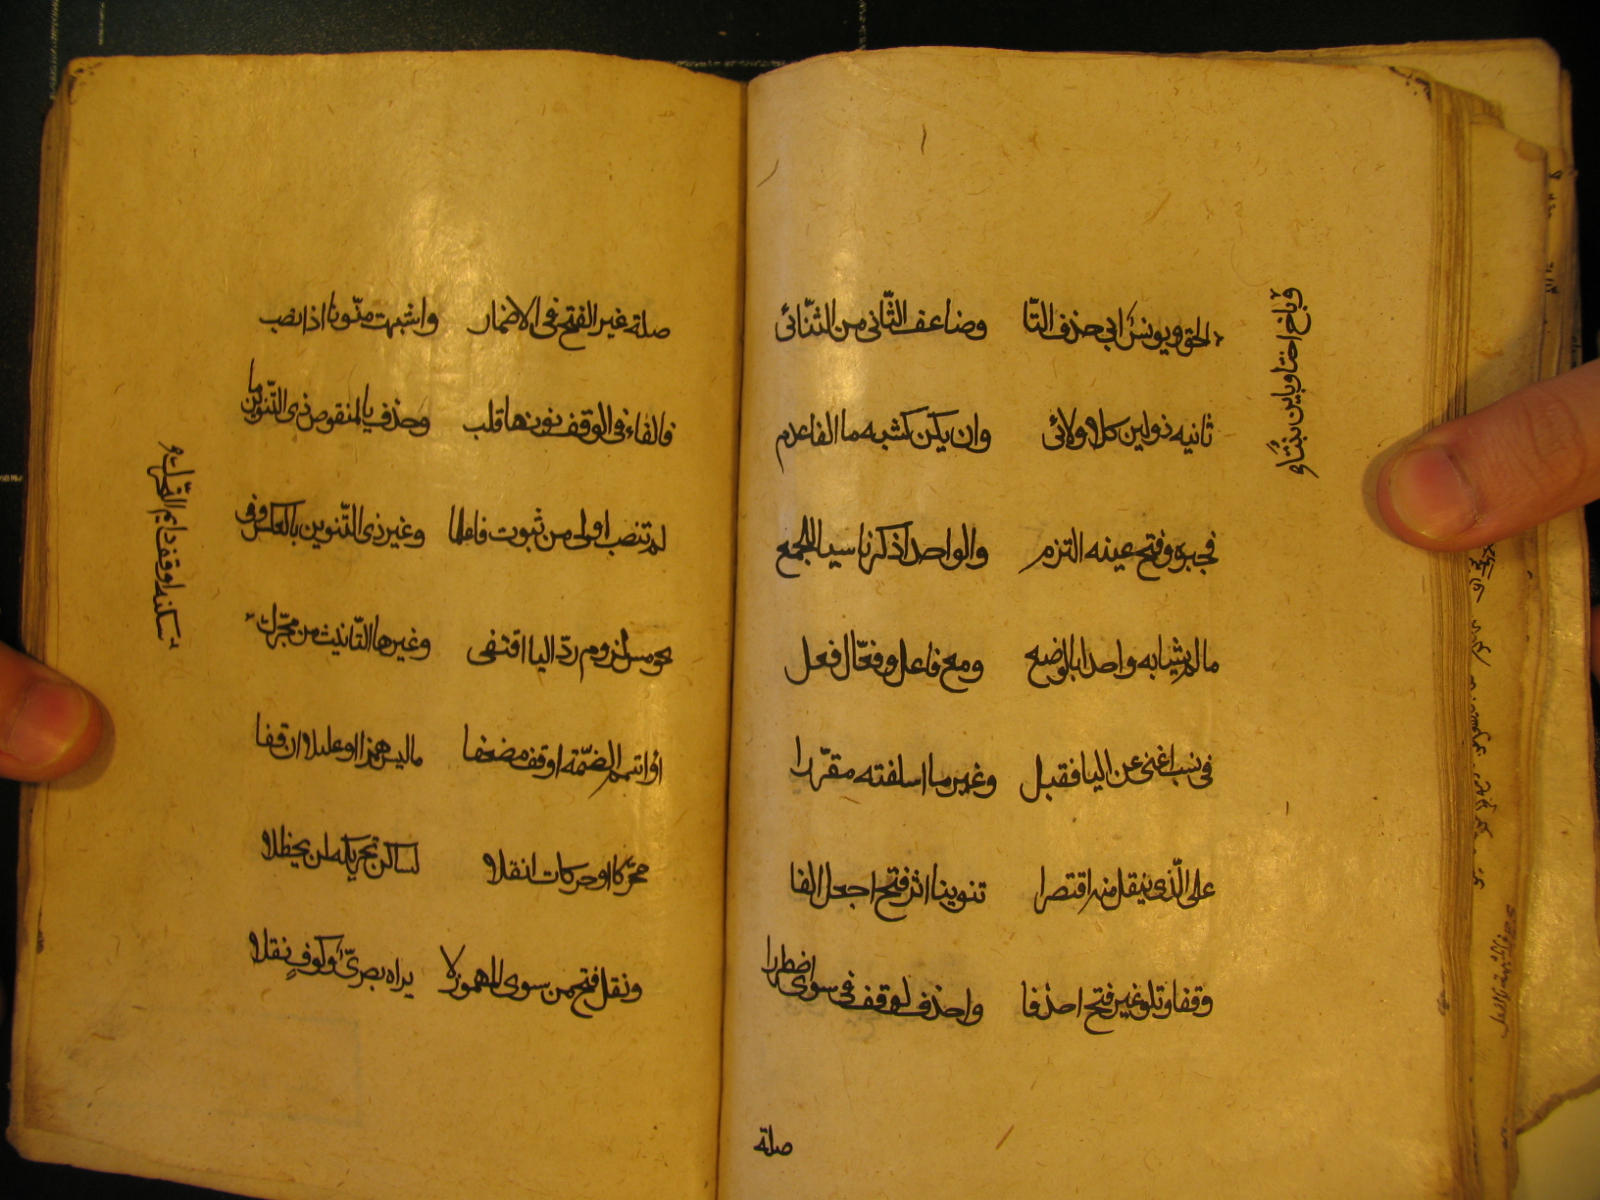 وباخ اختا وباين بنتا و
الحق ويونس ابى حذف التّا وضاعف الثّانى من الثنّائى
ثانيه ذو لين كلا ولائى وان يكن كشيه ما الفا عدم
فجبره وفتح عينه التزم والواحد اذكر ناسبا للجمع
ما لم يشابه واحدا بالوضع ومع فاعل وفعّال فعل
فى نسب اغنى عن اليا فقبل وغير ما اسلفته مقرّرا
على الّذى ينقل منه اقتصرا تنوينا اثر فتح اجعل الفا
وقفا وتلو غير فتح احذفا واحذف لوقف فى سوى اضطرارا
صلة
صلة غير الفتح فى الاضمار واشبهت منّونا اذا نصب
فالفاء فى الوقف نونها قلب وحذف يا المنقوص ذى التّنوين ما
لم تنصب اولى من ثبوت فاعلما وغير ذى التّنوين بالعكس وفى
نحو مر لزوم ردّ اليا اقتفى وغيرها التّانيث من محرّك
سكنه او قف دايم التّحرك
او اشمم الضمّة او قف مضعفا ما ليس همزا او عليلا ان قفا
محرّكا او حركات انقلا لساكن تحريكه لن يحظلا
ونقل فتح من سوى المهموز لا يراه بصرىّ وكوفٍ نقلا